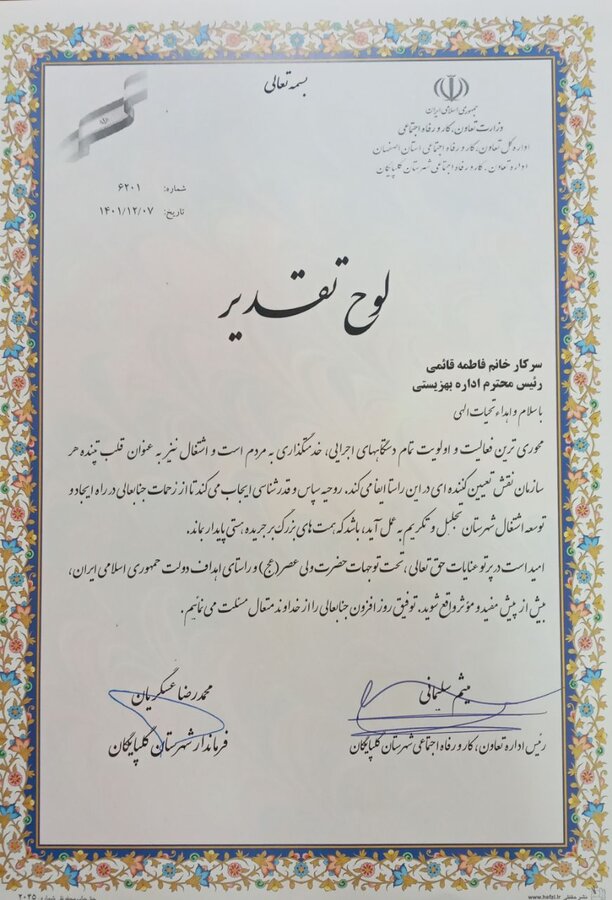 بسمه تعالی
جمهوری اسلامی ایران
وزارت تعاون، کار و رفاه اجتماعی
اداره کل تعاون، کار و رفاه اجتماعی استان اصفهان
اداره تعاون، کار و رفاه اجتماعی شهرستان گلپایگان
شماره: ۶۲۰۱
تاریخ: ۱۴۰۱/۱۲/۰۷
لوح تقدیر
سرکار خانم فاطمه قائمی
رئیس محترم اداره بهزیستی
با سلام و اهداء تحیات الهی
محوری ترین فعالیت و اولویت تمام دستگاههای اجرایی، خدمتگذاری به مردم است و اشتغال نیز به عنوان قلب تپنده هر
سازمان نقش تعیین کننده ای در این راستا ایفا می کند. روحیه سپاس و قدرشناسی ایجاب می کند تا از زحمات جنابعالی در راه ایجاد و
توسعه اشتغال شهرستان تجلیل و تکریم به عمل آید، باشد که همت های بزرگ بر جریده هستی پایدار بماند.
امید است در پرتو عنایات حق تعالی، تحت توجهات حضرت ولی عصر (عج) و راستای اهداف دولت جمهوری اسلامی ایران،
بیش از پیش مفید و مؤثر واقع شوید. توفیق روز افزون جنابعالی را از خداوند متعال مسئلت می نمائیم.
میثم سلیمانی
رئیس اداره تعاون، کار و رفاه اجتماعی شهرستان گلپایگان
محمدرضا عسکریان
فرماندار شهرستان گلپایگان
www.hefzi.ir
۲۰۲۵